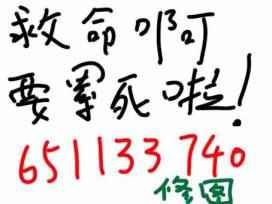 救命啊
要累死啦!
651133740
修图